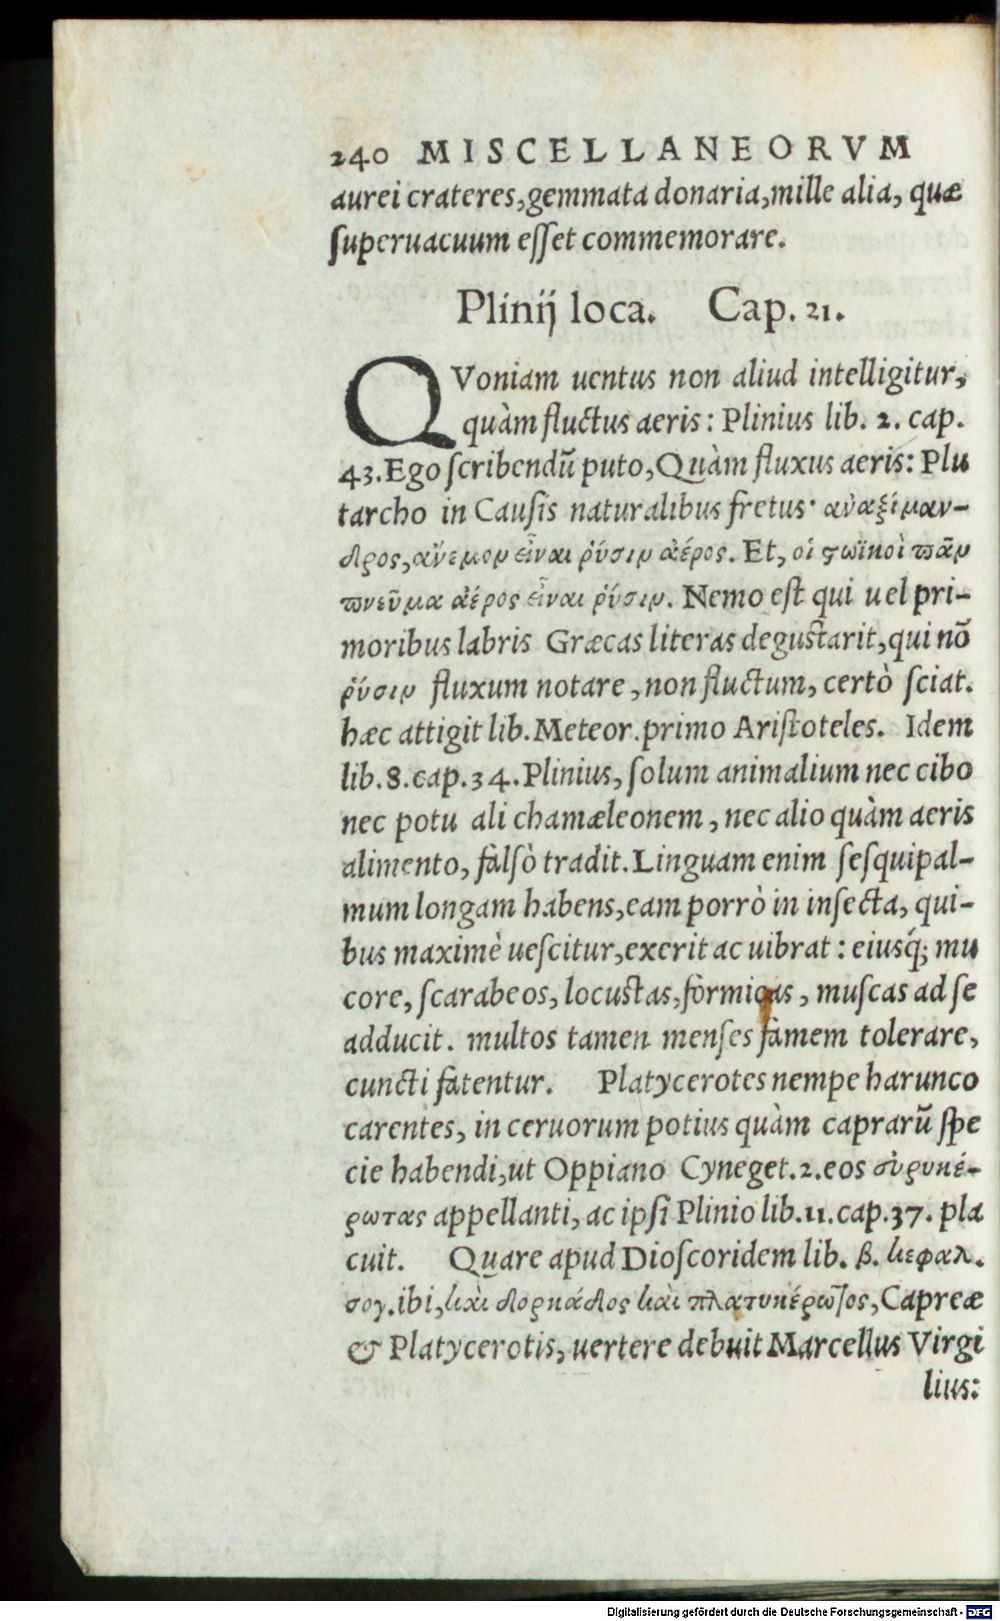 240 MISCELLANEORVM
aurei crateres,gemmata donaria,mille alia, quæ
ſuperuacuum eſſet commemorare.
Plinij loca. Cap. 21.
QVoniam uentus non aliud intelligitur,
quàm fluctus aeris: Plinius lib. 2. cap.
43.Ego ſcribendũ puto,Quàm fluxus aeris: Plu
tarcho in Cauſis naturalibus fretus· ἀναξίμαν-
δρος,ἄνεμον εἶναι ῥύσιν ἀέρος. Et, οἱ ϛωϊκοὶ πᾶν
πνεῦμα ἀέρος εἶναι ῥύσιν. Nemo eſt qui uel pri-
moribus labris Græcas literas deguſtarit,qui nõ
ῥύσιν fluxum notare,non fluctum, certò ſciat.
hæc attigit lib.Meteor.primo Ariſtoteles. Idem
lib.8.cap.34.Plinius, ſolum animalium nec cibo
nec potu ali chamæleonem, nec alio quàm aeris
alimento, falſò tradit.Linguam enim ſeſquipal-
mum longam habens,eam porrò in inſecta, qui-
bus maximè ueſcitur,exerit ac uibrat: eiusq́; mu
core, ſcarabeos, locuſtas,formicas, muſcas ad ſe
adducit. multos tamen menſes famem tolerare,
cuncti fatentur. Platycerotes nempe harunco
carentes, in ceruorum potius quàm caprarũ ſpe
cie habendi,ut Oppiano Cyneget.2.eos εὐρυκέ-
ρωτας appellanti, ac ipſi Plinio lib.11.cap.37. pla
cuit. Quare apud Dioſcoridem lib. β. κεφαλ.
σογ.ibi,καὶ δορκάδος καὶ πλατυκέρωτος,Capreæ
& Platycerotis, uertere debuit Marcellus Virgi
lius:
Digitalisierung gefördert durch die Deutsche Forschungsgemeinschaft - DFG